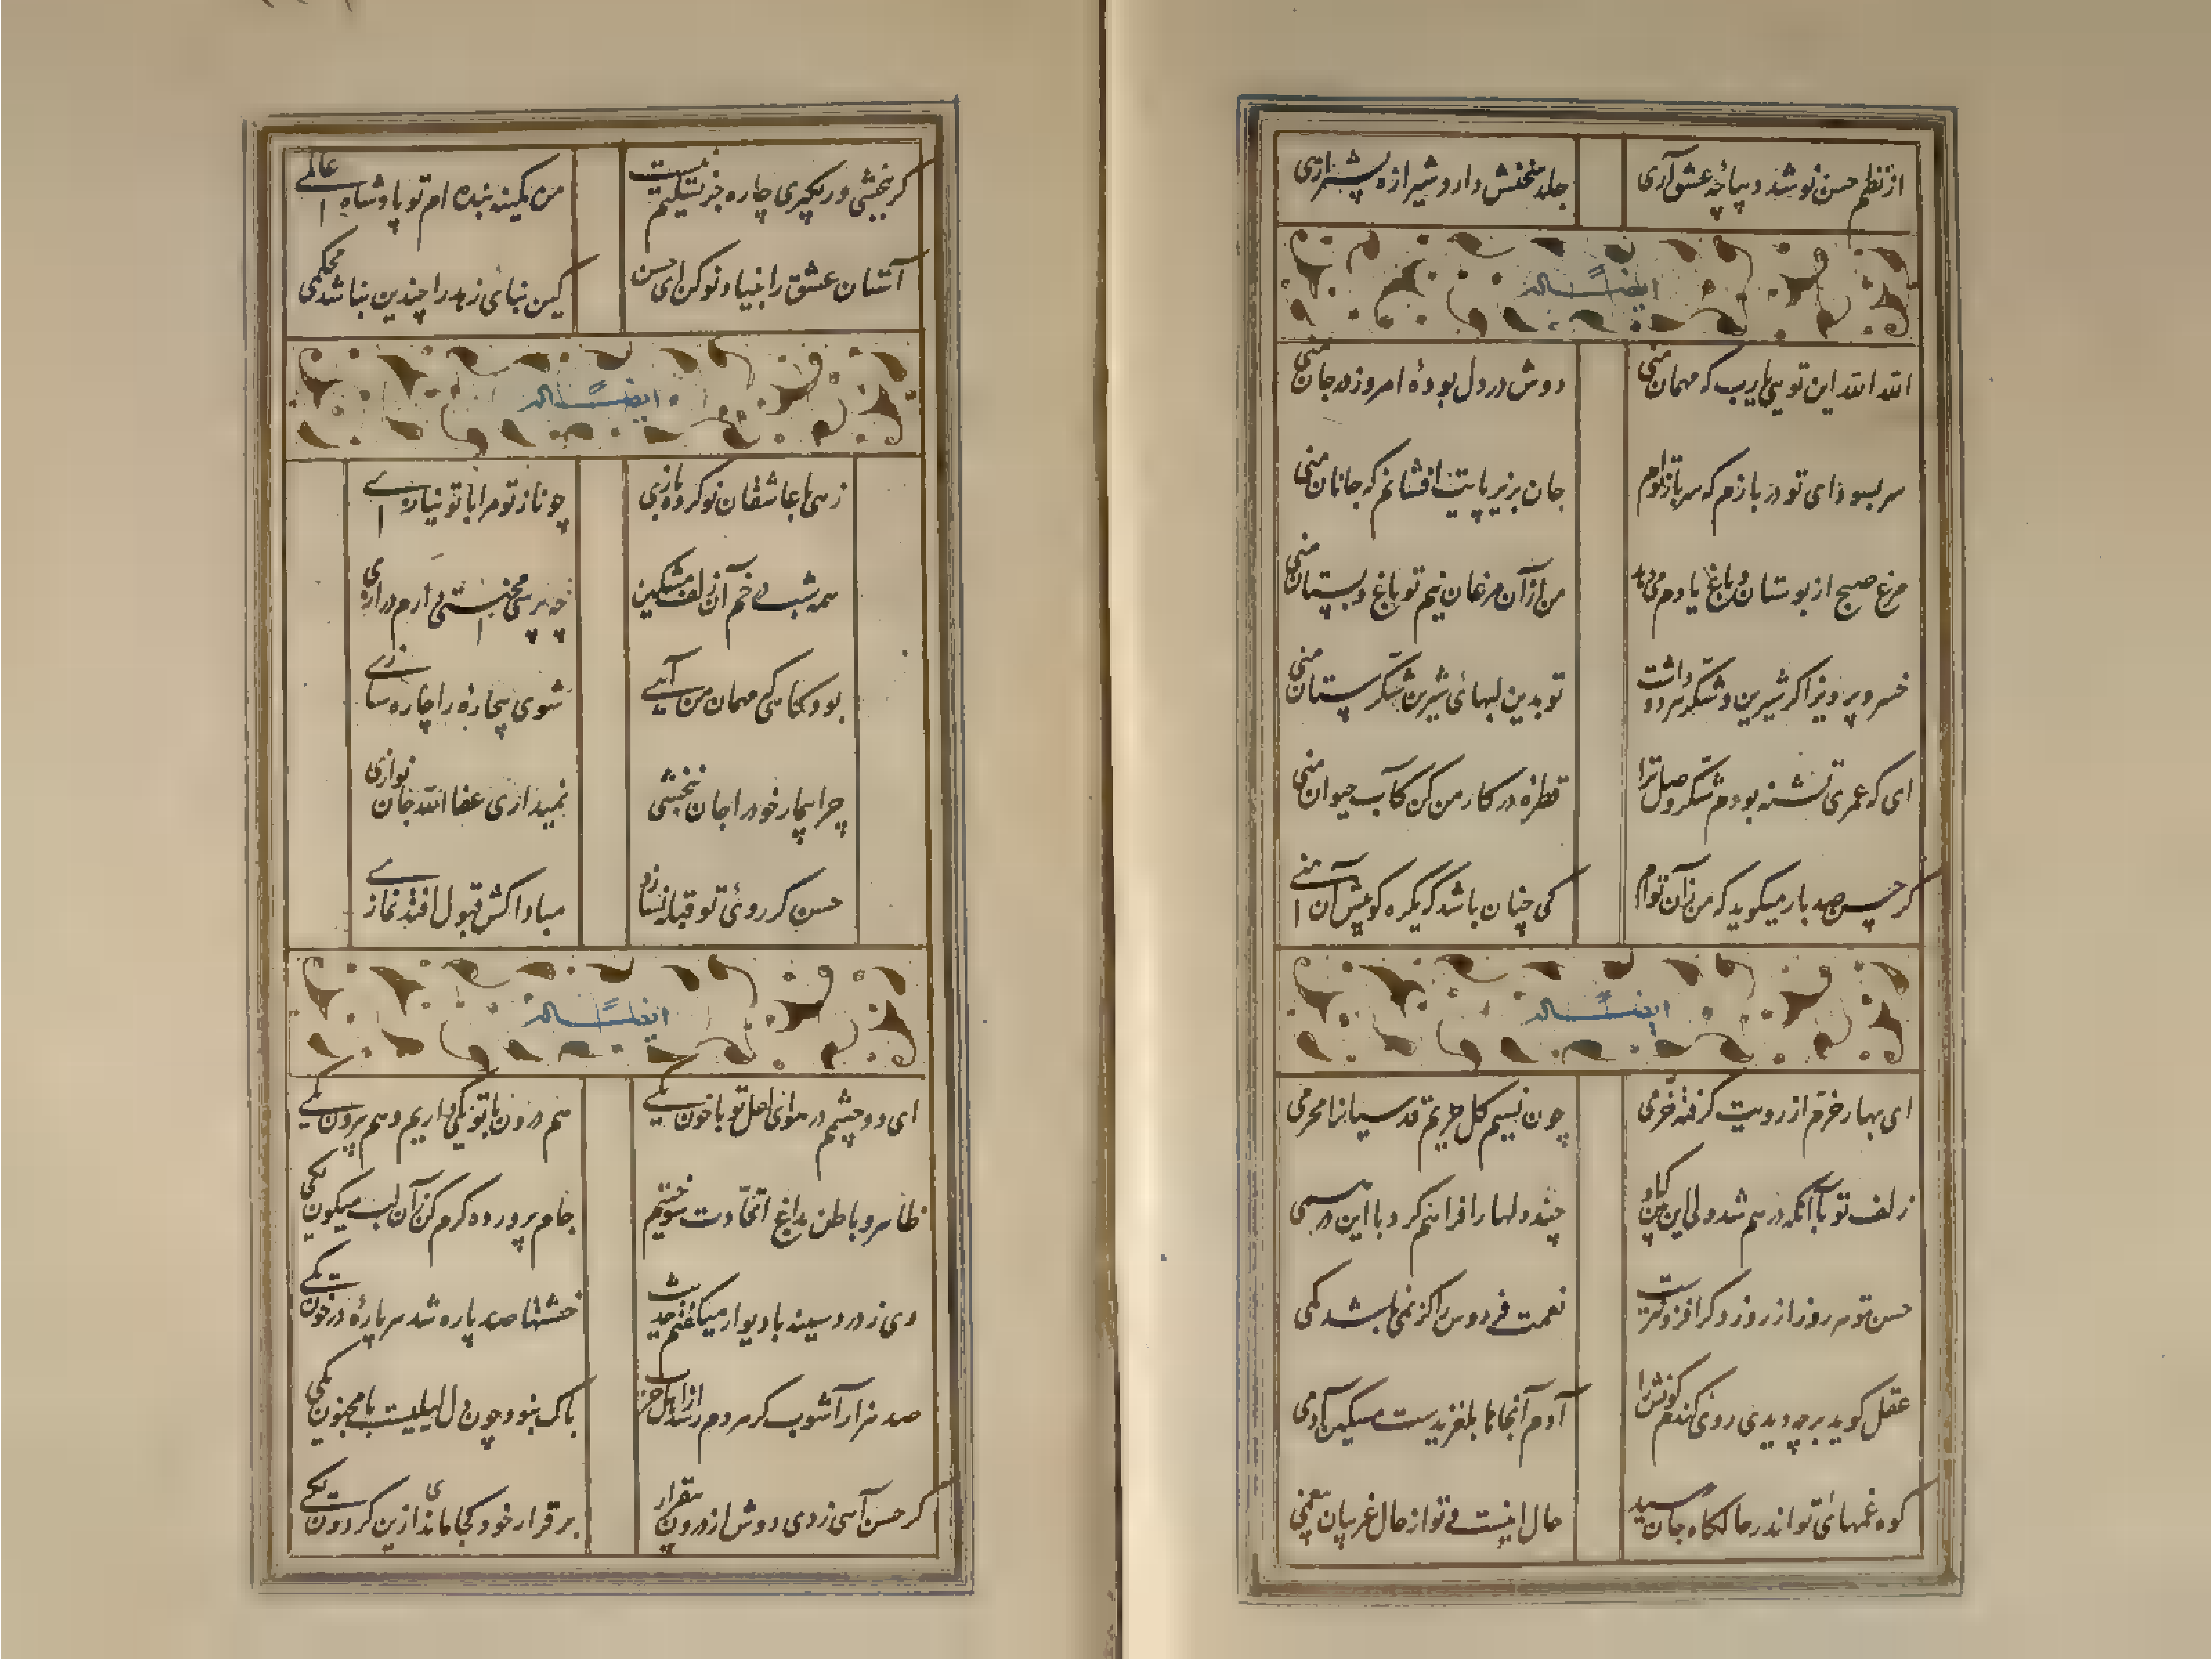 از نظم حسن نو شد دیباچهٔ عشق آری
جلد سخنش دارد شیرازهٔ شیرازی
ایضاً له
الله الله این تویی یارب که مهمان منی
دوش در دل بودهٔ امروز در جان منی
سر بسودای تو در بازم که سرباز توام
جان بزیر پایت افشانم که جانان منی
مرغ صبح از بوستان و باغ یادم می‌دهد
من از آن مرغان نیم تو باغ و بستان منی
خسرو پرویز اگر شیرین و شکر دوست داشت
تو بدین لبهای شیرین شکرستان منی
ای که عمری تشنه بودم شکر وصل ترا
قطرهٔ در کار من کن کآب حیوان منی
گر حسن صد بار میگوید که من زآن توام
کی چنان باشد که یکره گوییش آن منی
ایضاً له
ای بهار خرم از رویت گرفته خرمی
چون نسیم گل حریمت قدسیانرا محرمی
زلف تو باآنکه درهم شد ولی این بین که او
چند دلها را فراهم کرد با این درهمی
حسن تو هر روز از روز دگر افزونترست
نعمت فردوس را گر نمی‌باشد کمی
عقل گوید بر چه دیدی روی گندم گونش را
آدم آنجاها بلغزیدست مسکین آدمی
کوه غمهای تو اندر جانگاه جان رسید
حال اینست تو از حال غریبان بیغمی
گر ببخشی ور بگیری چاره جز تسلیم نیست
من کمینه بنده ام تو پادشاه عالمی
آستان عشق را بنیاد نو کن ای حسن
کین بنای زهد را چندین نباشد محکمی
ایضاً له
زهی با عاشقان نو کرده بازی
چو ناز تو مرا با تو نیازی
همه شب در خم آن زلف مشکین
چه پرسی محنتی دارم درازی
بود گاهی مهمان من آیی
شوی بیچارهٔ را چاره سازی
چرا بیمار خود را جان نبخشی
نمیداری عفا الله جان نوازی
حسن گر روی تو قبله نسازد
مبادا کش قبول افتد نمازی
ایضاً له
ای دو چشمم در هوای لعل تو با خون یکی
هم درون با تو یکی داریم و هم بیرون یکی
ظاهر و باطن بداغ اتحادت سوختیم
جام پرورده کرم کن زآن لب میگون یکی
دی ز درد سینه با دیوار میگفتم حدیث
خشتها صد پاره شد هر پارهٔ در خون یکی
صد هزار آشوب گر مردم رسد از اهل حی
باک نبود چون دل لیلیست با مجنون یکی
گر حسن آهی زدی دوش از درون بیقرار
برقرار خود کجا ماندی ازین گردون یکی